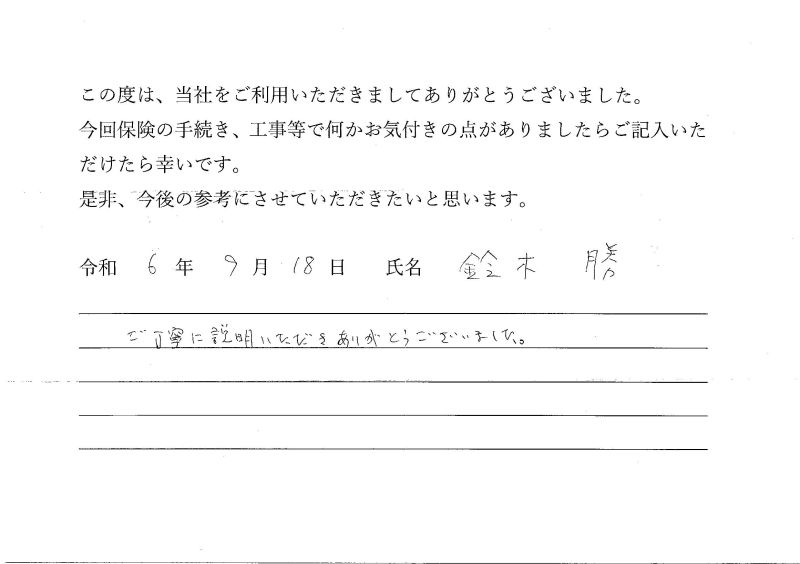 この度は、当社をご利用いただきましてありがとうございました。
今回保険の手続き、工事等で何かお気付きの点がありましたらご記入いた
だけたら幸いです。
是非、今後の参考にさせていただきたいと思います。
令和 6 年 9 月 18 日 氏名 鈴木 勝
ご丁寧に説明いただきありがとうございました。